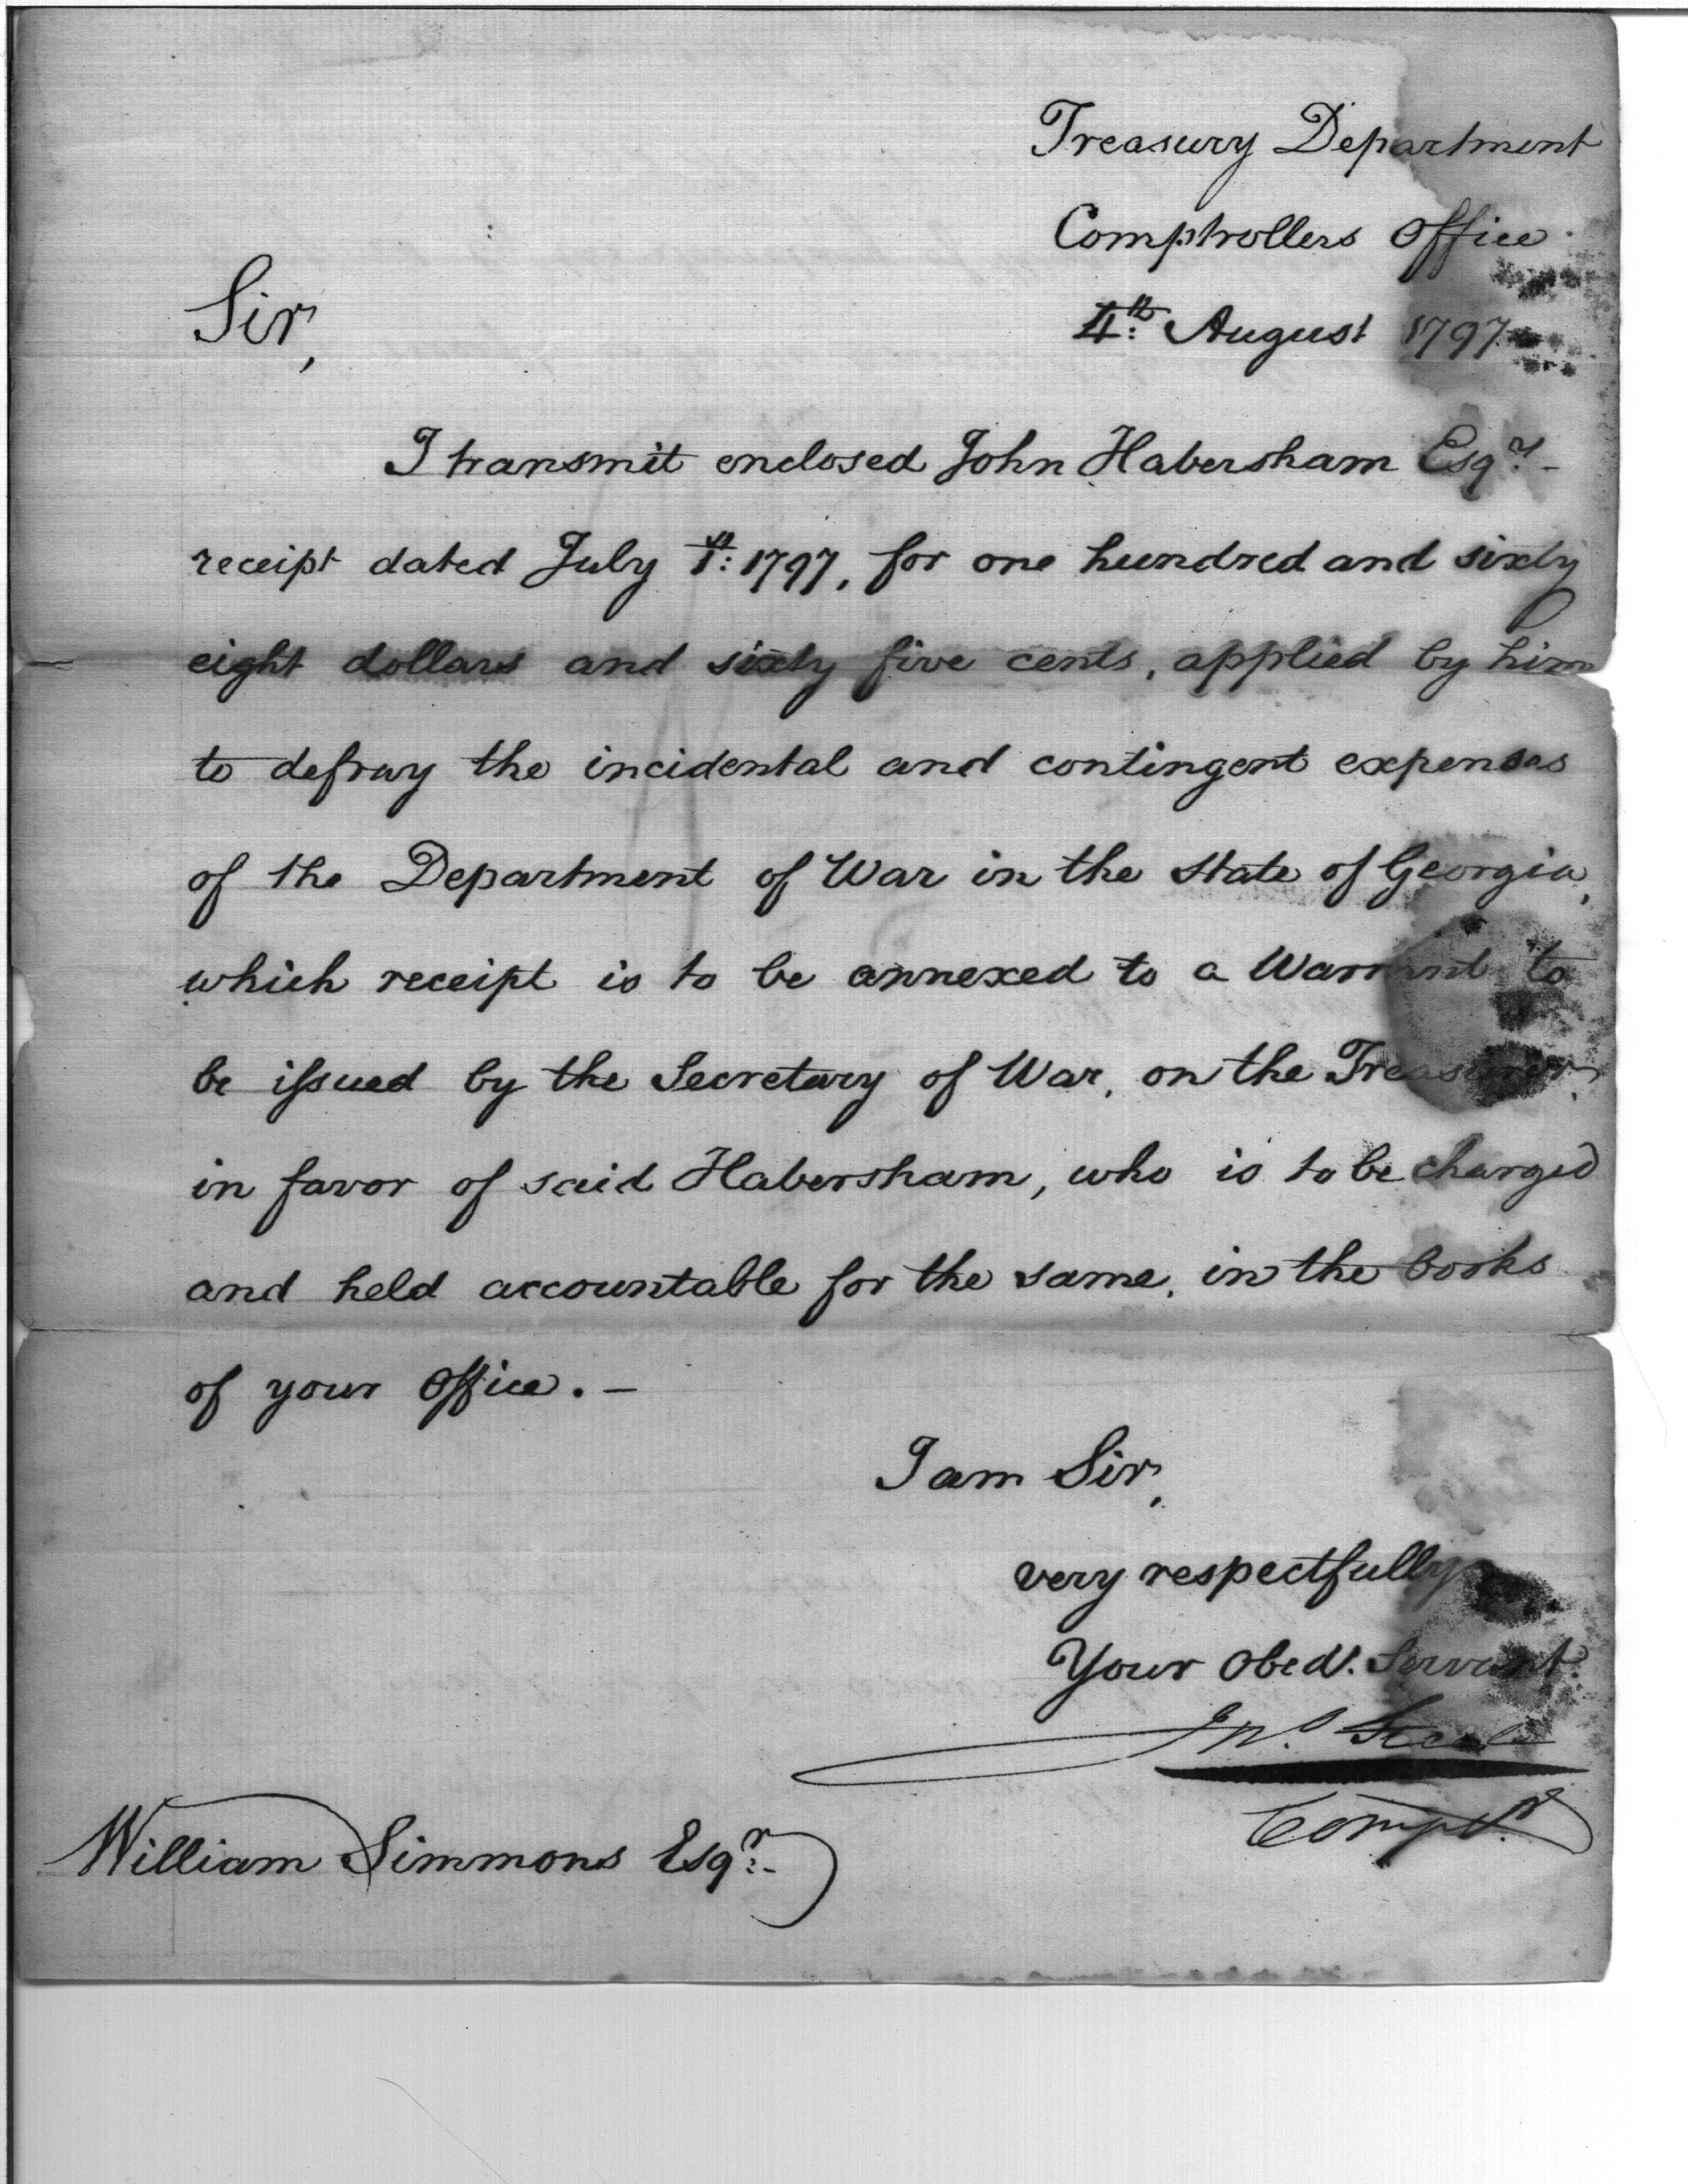 Treasury Department
Comptrollers Office
4th: August 1797
Sir,
I transmit enclosed John Habersham Esqr.-
receipt dated July 1st: 1797, for one hundred and sixty
eight dollars and sixty five cents, applied by him
to defray the incidental and contingent expenses
of the Department of War in the State of Georgia,
which receipt is to be annexed to a Warrant to
be issued by the Secretary of War, on the Treasurer,
in favor of said Habersham, who is to be charged
and held accountable for the same, in the books
of your Office. -
I am Sir,
very respectfully
Your Obedt. Servant.
Jno. Steele
Comptr.
William Simmons Esqr.-